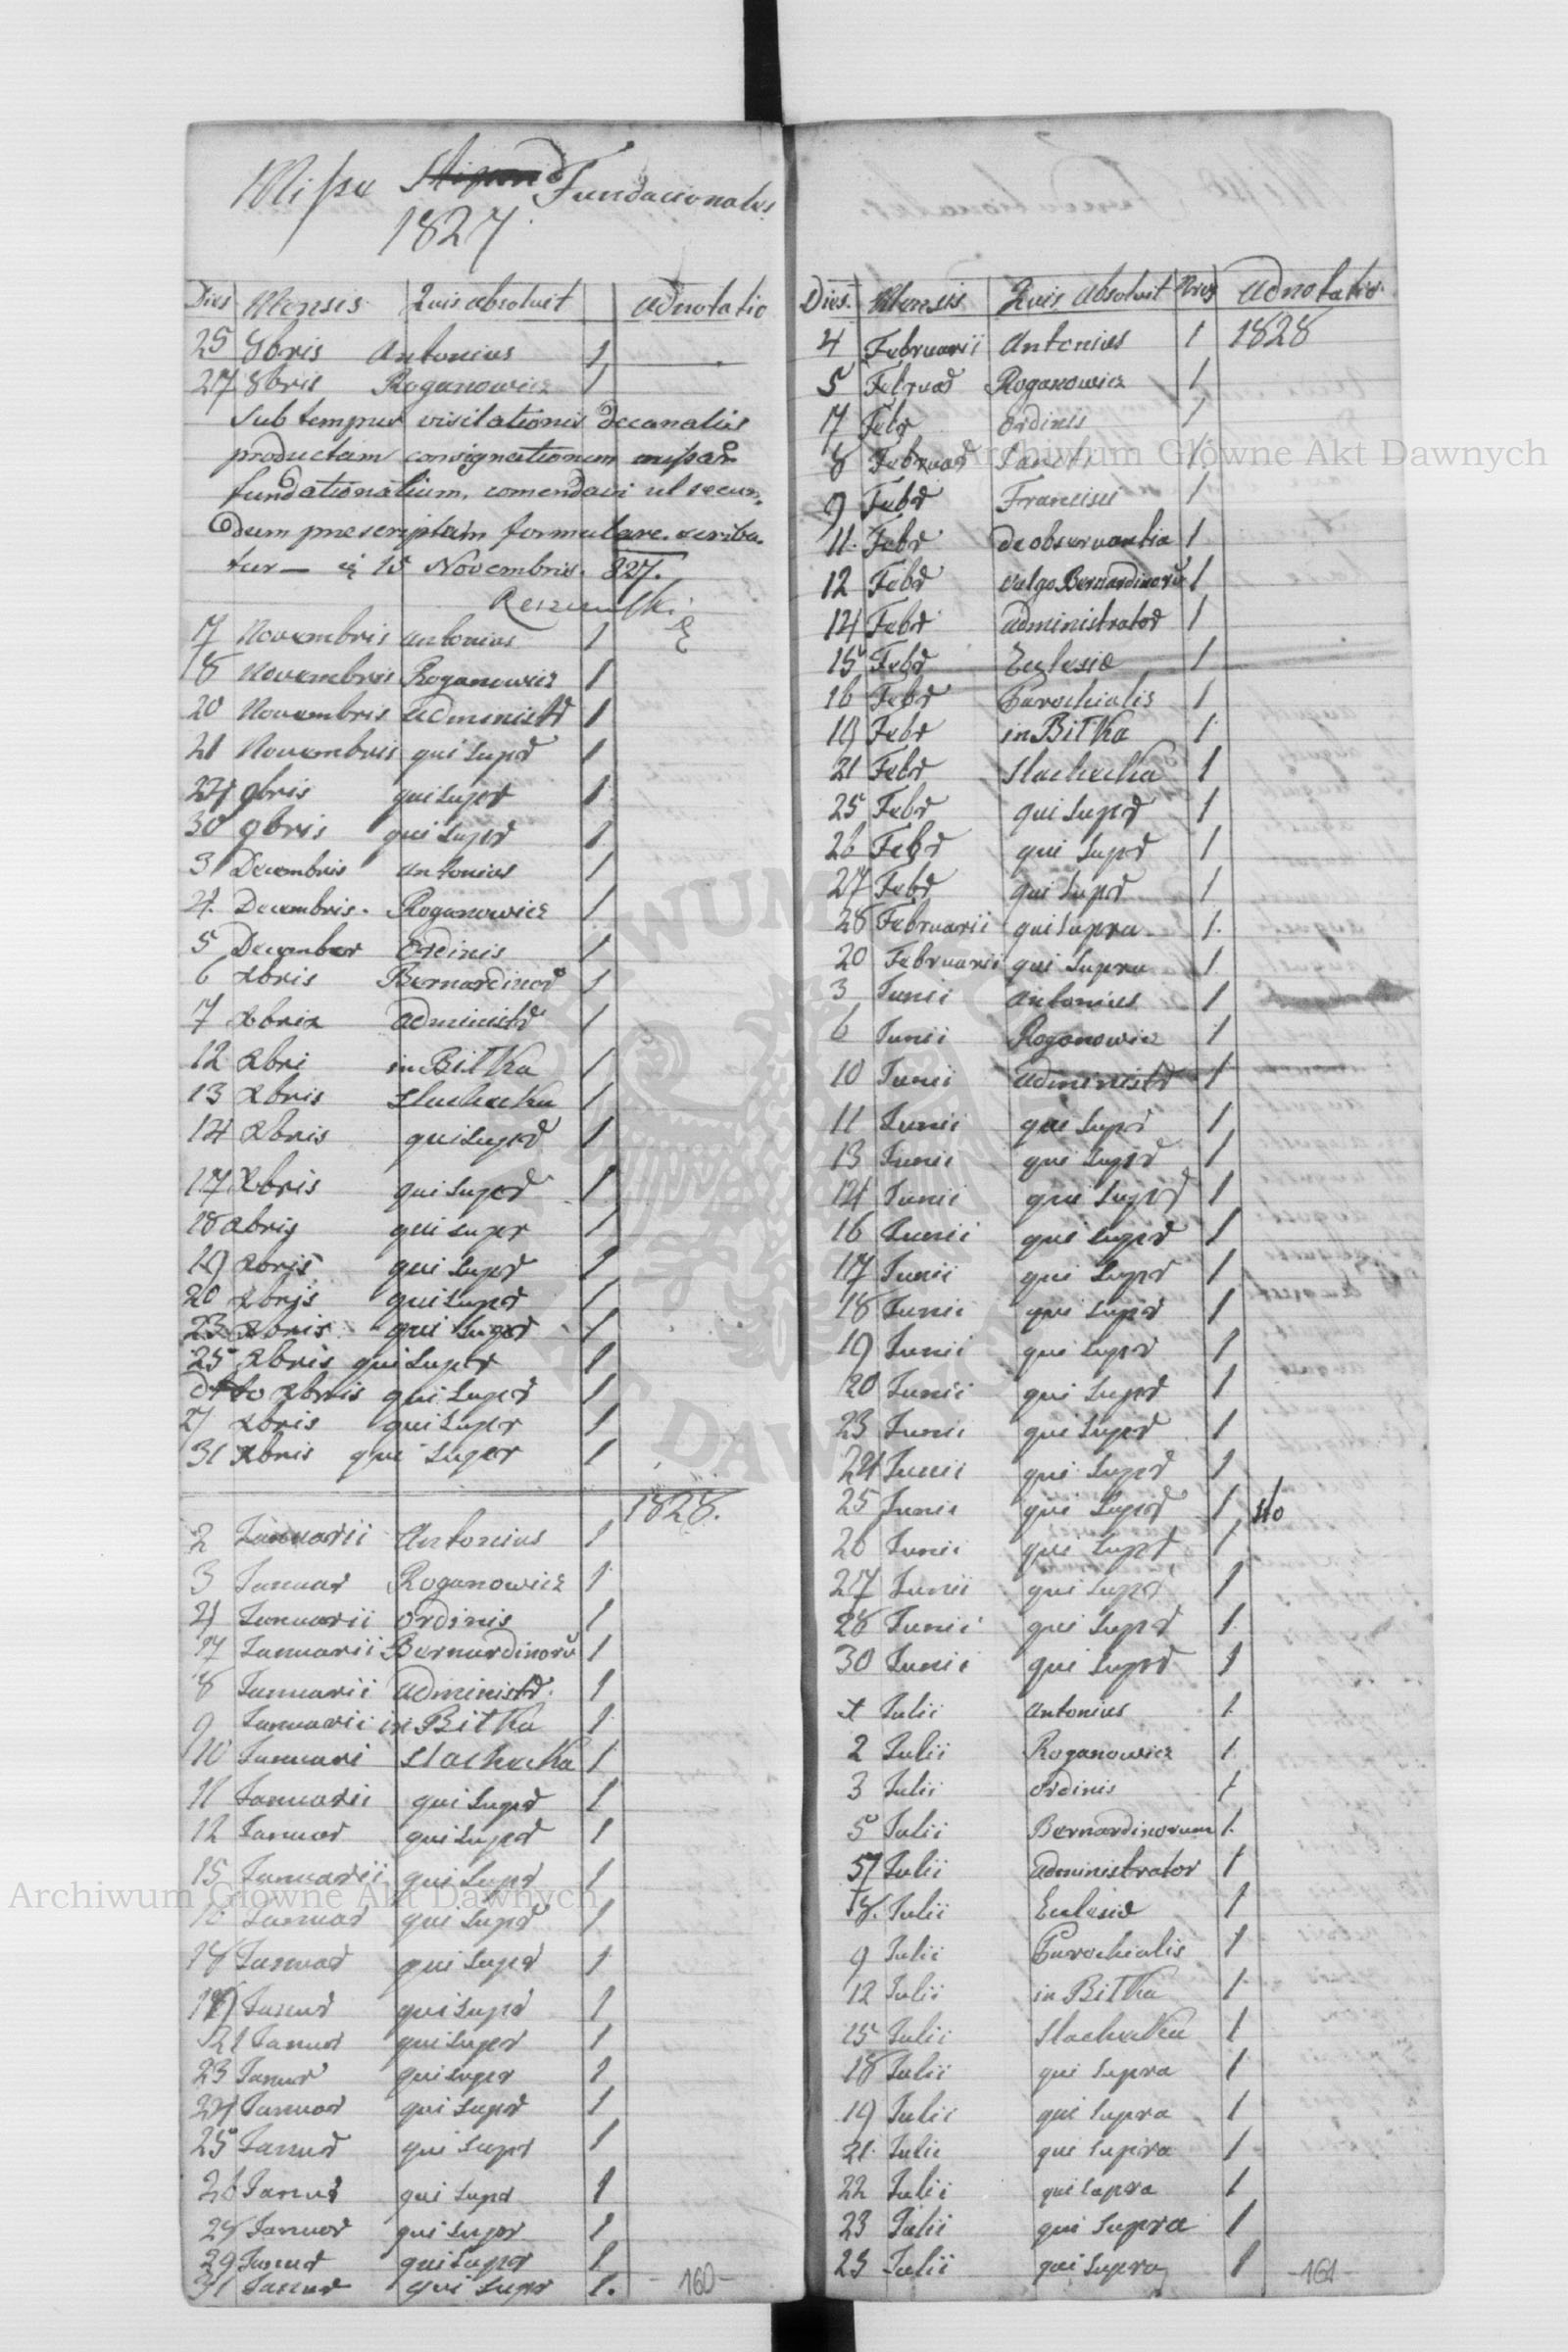 Missæ Fundacionales
1827.
Dies Mensis Quis absolvit adnotatio
25 8bris Antonius 1
27 8bris Roganowicz 1
Sub tempus visitationis decanalis
productam consignationem missar
fundationalium, comendavi ut secun
dum prescriptam formulare scriba
tur — 15 Novembris. 827.
7 Novembris antonius 1
18 Novembris Roganowicz 1
20 Novembris administr 1
21 Novembris qui supr 1
24 9bris qui supr 1
30 9bris qui supr 1
3 Decembris antonius 1
4. Decembris. Roganowicz 1
5 December Ordinis 1
6 Xbris Bernardinor 1
7 Xbris administr 1
12 Xbri in Bitka 1
13 Xbris Slachecka 1
14 Xbris qui supr 1
17 Xbris qui supr 1
18 Xbris qui supr 1
19 Xbris qui supr 1
20 Xbris qui supr 1
23 Xbris qui supr 1
25 Xbris qui supr 1
dtto Xbris qui supr 1
Xbris qui supr 1
31 Xbris qui super 1
1828.
2 Januarii Antonius 1
3 Januar Roganowicz 1
4 Januarii ordinis 1
7 Januarii Bernardinorũ 1
8 Januarii administr. 1
9 Januarii in Bitka 1
10 Januari Slachecka 1
11 Januarii qui supr 1
12 Januar qui supr 1
15 Januarii qui supr 1
Januar qui supr 1
18 Januar qui supr 1
19 Januar qui supr 1
21 Januar qui supr 1
23 Januar qui supr 1
24 Januar qui supr 1
25 Januar qui supr 1
26 Januar qui supr 1
28 Januar qui supr 1
29 Januar qui supr 1
31 Januar qui supr 1.
-160-
Dies. Mensis Quis absolvit adnotatio.
4 Februarii Antonius 1 1828
5 Februar Roganowicz 1
7 Febr ordinis 1
8 Februar Sancti 1
9 Febr Francisci 1
11. Febr de observantia 1
12 Febr vulgo Bernardinorũ 1
14 Febr administrator 1
15 Febr Ecclesiæ 1
16 Febr Parochialis 1
19 Febr in Bitka 1
21 Febr Slachecka 1
25 Febr qui supr 1
26 Febr qui supr 1
27 Febr qui supr 1
28 Februarii qui supra 1.
20 Februarii qui supra 1
3 Junii antonius 1
6 Junii Roganowicz 1
10 Junii administr 1
11 Junii qui supr 1
13 Junii qui supr 1
14 Junii qui supr 1
16 Junii qui supr 1
17 Junii qui supr 1
18 Junii qui supr 1
19 Junii qui supr 1
20 Junii qui supr 1
23 Junii qui supr 1
24 Junii qui supr 1
25 Junii qui supr 1
26 Junii qui supr 1
27 Junii qui supr 1
28 Junii qui supr 1
30 Junii qui supr 1
Julii antonius 1
2 Julii Roganowicz 1
3 Julii ordinis 1
5 Julii Bernardinorum 1
7 Julii administrator 1
8. Julii Eclesiæ 1
9 Julii Parochialis 1
12 Julii in Bitka 1
15 Julii Slachecka 1
18 Julii qui supra 1
19 Julii qui supra 1
21. Julii qui supra 1
22 Julii qui supra 1
23 Julii qui supra 1
25 Julii qui supra 1
-161-
Archiwum Główne Akt Dawnych
Archiwum Główne Akt Dawnych